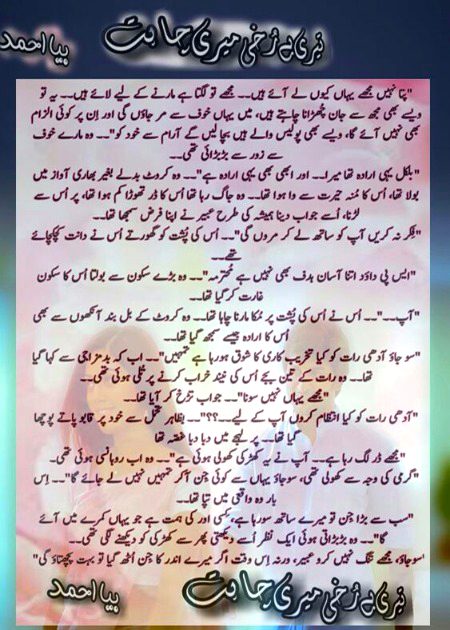 تیری بے رخی میری چاہت
بیا احمد
"پتا نہیں مجھے یہاں کیوں لے آئے ہیں۔۔ مجھے تو لگتا ہے مارنے کے لیے لائے ہیں۔۔ یہ تو
ویسے بھی مجھ سے جان چھڑانا چاہتے ہیں، میں یہاں خوف سے مر جاؤں گی اور اِن پر کوئی الزام
بھی نہیں آئے گا، ویسے بھی پولیس والے ہیں بچا لیں گے آرام سے خود کو"۔۔ وہ مارے خوف
سے زور سے بڑبڑائی تھی۔۔
"بلکل یہی ارادہ تھا میرا۔۔ اور ابھی بھی یہی ارادہ ہے"۔۔ وہ کروٹ بدلے بغیر بھاری آواز میں
بولا تھا، اُس کا مُنہ حیرت سے وا ہوا تھا۔۔ وہ جاگ رہا تھا اُس کا ڈر تھوڑا کم ہوا تھا، پر اُس سے
لڑنا، اُسے جواب دینا ہمیشہ کی طرح عبیر نے اپنا فرض سمجھا تھا۔۔
"فِکر نہ کریں آپ کو ساتھ لے کر مروں گی"۔۔ اُس کی پُشت کو گھورتے اُس نے دانت کچکچائے
تھے۔۔
"ایس پی داؤد اتنا آسان ہدف بھی نہیں ہے محترمہ"۔۔ وہ بڑے سکون سے بولتا اُس کا سکون
غارت کر گیا تھا۔۔
"آپ۔۔"۔۔ اُس نے اُس کی پشت پر مُکا مارنا چاہا تھا۔۔ وہ کروٹ کے بل بند آنکھوں سے بھی
اُس کا ارادہ جیسے سمجھ گیا تھا۔۔
"سو جاؤ آدھی رات کو کیا تخریب کاری کا شوق ہو رہا ہے تمہیں"۔۔ اب کہ بدمزاجی سے کہا گیا
تھا۔۔ وہ رات کے تین بجے اُس کی نیند خراب کرنے پر تُلی ہوئی تھی۔۔
"مجھے یہاں نہیں سونا"۔۔ جواب تڑخ کر آیا تھا۔۔
"آدھی رات کو کیا انتظام کروں آپ کے لیے۔۔؟؟"۔۔ بظاہر تحمل سے خود پر قابو پاتے پوچھا
گیا تھا۔۔ پر لہجے میں دبا دبا غصہ تھا
"مجھے ڈر لگ رہا ہے۔۔ آپ نے یہ کھڑکی کھولی ہوئی ہے"۔۔ وہ اب روہانسی ہوئی تھی۔
"گرمی کی وجہ سے کھولی تھی، سو جاؤ یہاں سے کوئی جن آ کر تمہیں نہیں لے جائے گا"۔۔ اِس
بار وہ واقعی میں تپا تھا۔۔
"سب سے بڑا جن تو میرے ساتھ سو رہا ہے، کِسی اور کی ہمت ہے جو یہاں کمرے میں آئے
گا"۔۔ وہ بڑبڑاتی ہوئی ایک نظر اُسے دیکھتی پھر سے کھڑکی کو دیکھنے لگی تھی۔۔
"سو جاؤ، مجھے تنگ نہیں کرو عبیر، ورنہ اِس وقت اگر میرے اندر کا جن اُٹھ گیا تو بہت پچھتاؤ گی"
تیری بے رخی میری چاہت
بیا احمد